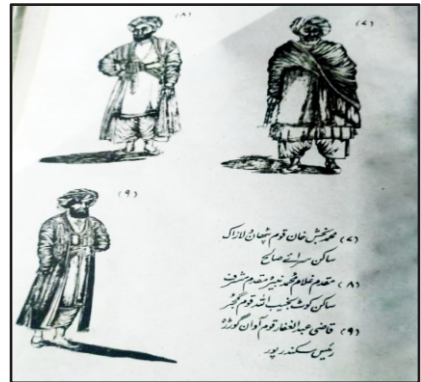 (۸)
(۷)
(۹)
(۷) محمد بخش خان قوم پٹھان دلازاک
ساکن سرائے صالح
(۸) مقدم غلام محمد نبیرہ مقدم مشرف
ساکن کوٹ نجیب اللہ قوم گجر
(۹) قاضی عبدالغفار قوم آوان گولڑہ
رئیس سکندر پور